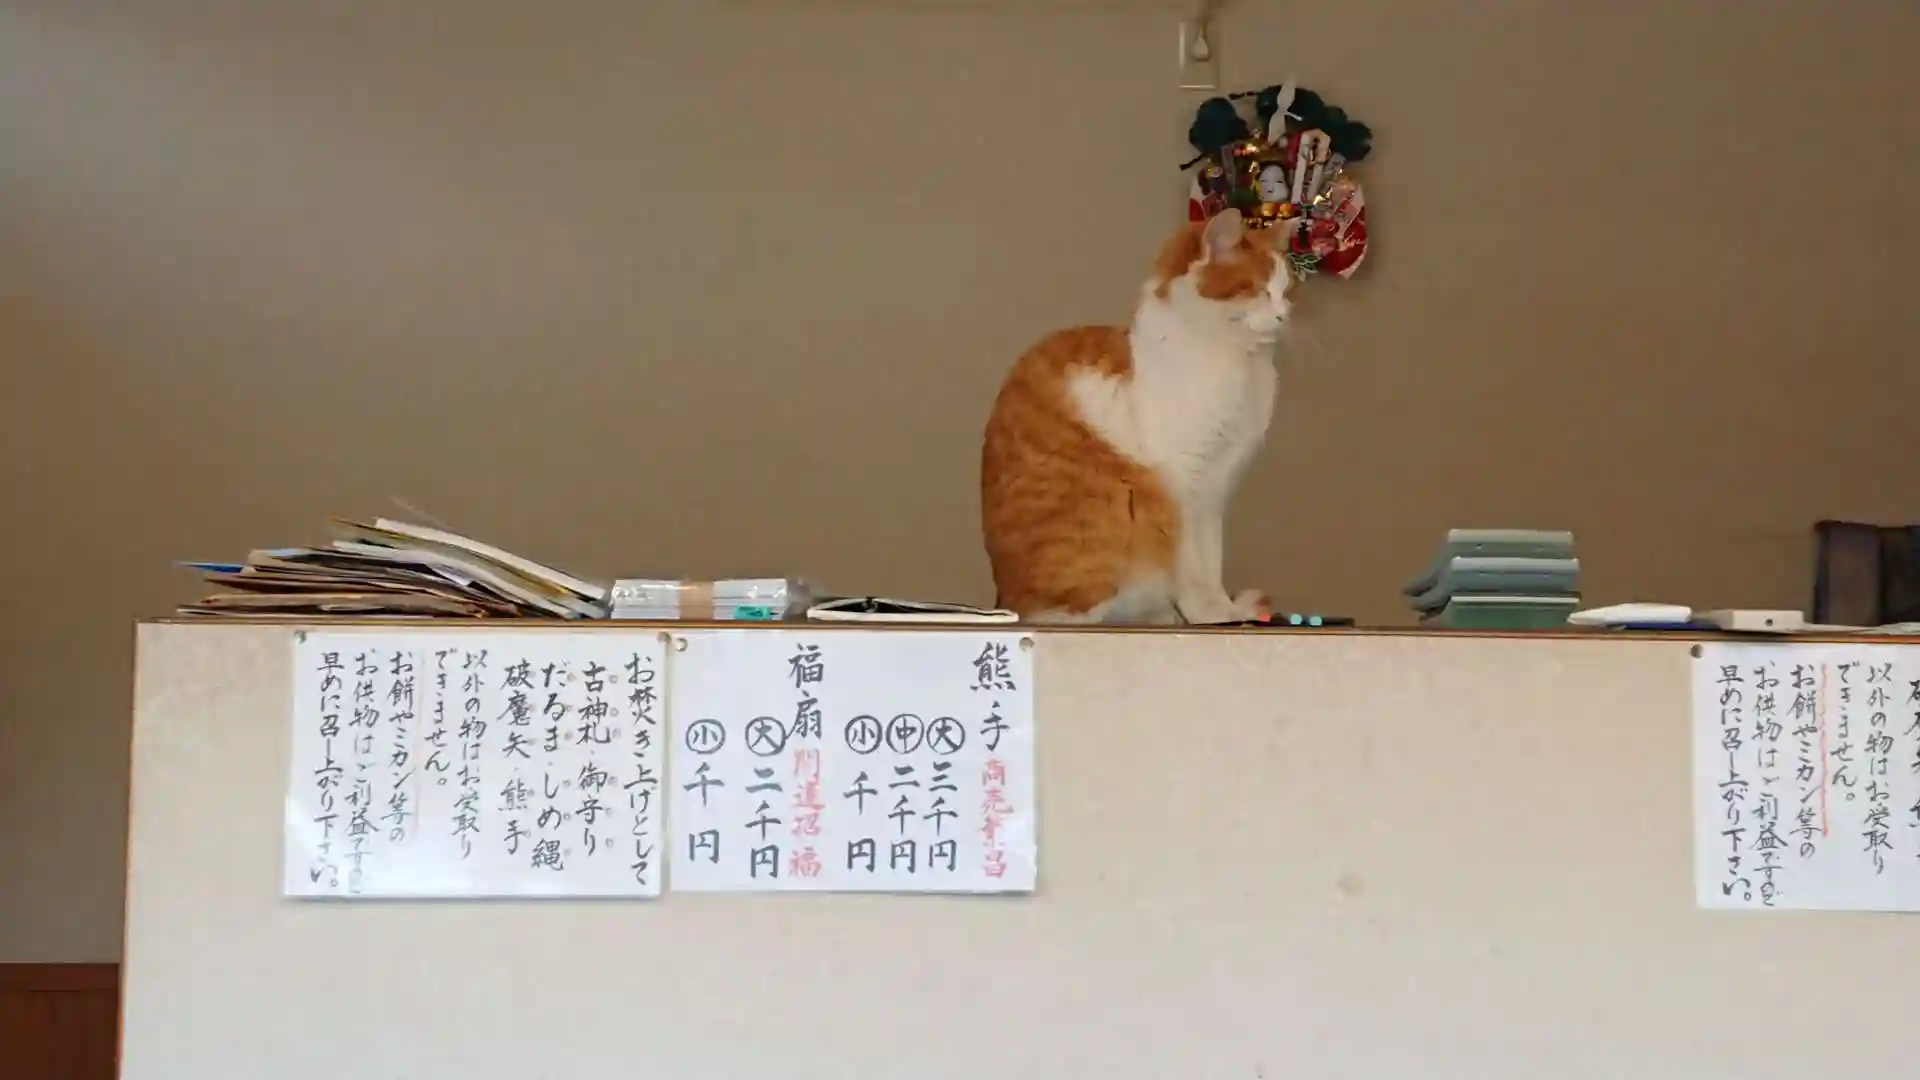 お焚き上げとして
古神札・御守り
だるま・しめ縄
破魔矢 熊手
以外の物はお受取り
できません。
お餅やミカン等の
お供物はご利益ですので
早めに召し上がり下さい。
熊手 商売繁昌
大 三千円
中 二千円
小 千円
福扇 開運招福
大 二千円
小 千円
以外の物はお受取り
できません。
お餅やミカン等の
お供物はご利益ですので
早めに召し上がり下さい。